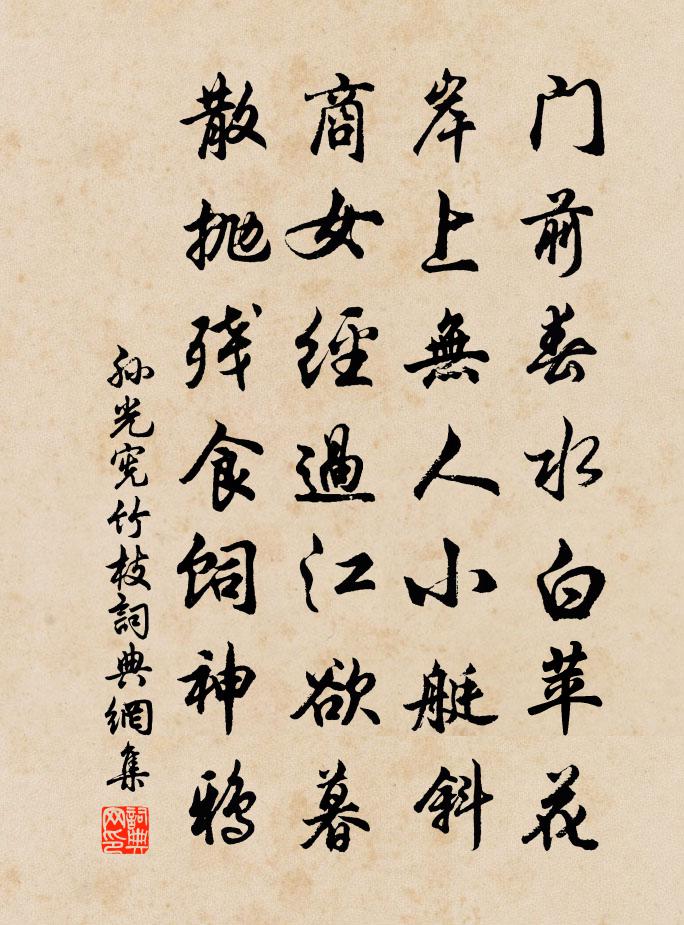 门前春水白苹花
岸上無人小艇斜
商女經過江欲暮
散抛残食饲神鸦
孙光宪竹枝詞典網集
詞典网印